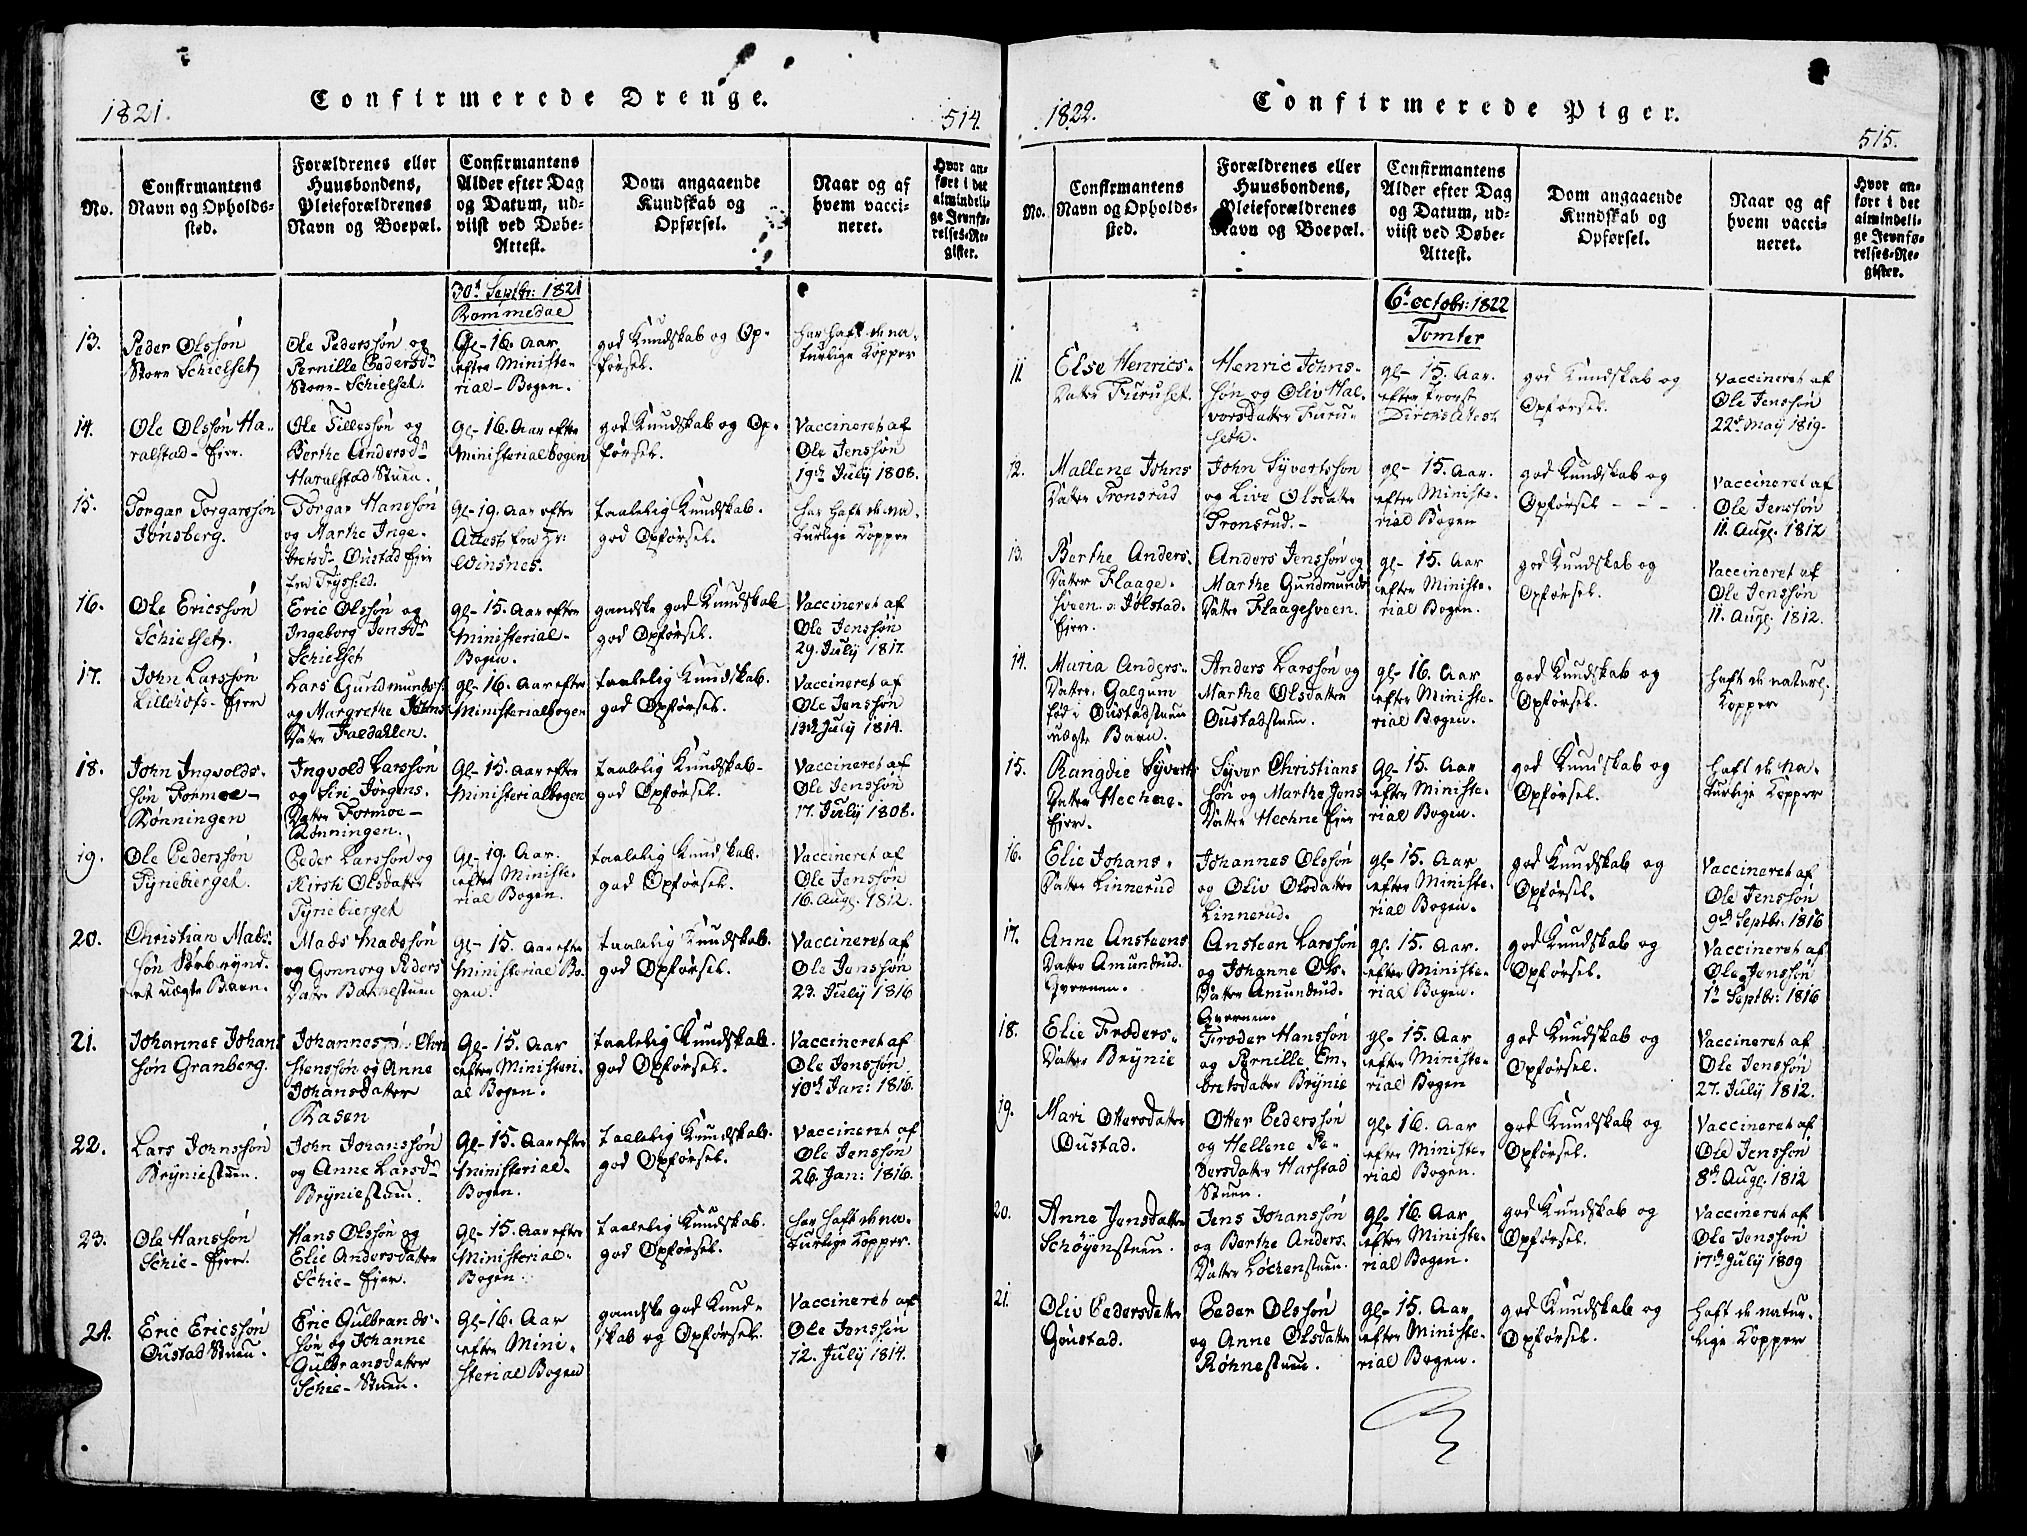 1821.
Confirmerede Drenge.
514.
No.
Confirmantens
Navn og Opholds-
sted.
Forældrenes eller
Huusbondens,
Pleieforældrenes
Navn og Boepæl.
Confirmantens
Alder efter Dag
og Datum, ud-
viist ved Døbe-
Attest.
Dom angaaende
Kundskab og
Opførsel.
Naar og af
hvem vacci-
neret.
Hvor an-
ført i det
almindeli-
ge Jevnfø-
relses-Re-
gister.
30t Septbr: 1821
Rommedal
13.
Peder Olssøn
Store Schielset
Ole Pederssøn og
Pernille Pedersd
Store-Schielset.
Gl-16. Aar
efter Ministe-
rial-Bogen.
god Kundskab og Op-
førsel.
har haft de na-
turlige Kopper
14.
Ole Olssøn Ha-
ralstad-Eier.
Ole Tillessøn og
Berthe Andersd
Haralstad Stuen.
Gl-16. Aar efter
Ministerialbogen
god Kundskab og Op-
førsel.
Vaccineret af
Ole Jenssøn
19de July 1808.
15.
Torgar Torgarssøn
Jønsberg.
Torgar Hanssøn
og Marthe Inge-
bretsd Oustad Eier
fra Trysild.
Gl-19. Aar efter
Attest fra Hr:
Winsnes.
taalelig Kundskab.
god Opførsel.
har haft de na-
turlige Kopper
16.
Ole Ericssøn
Schielset.
Eric Olssøn og
Ingeborg Jensd
Schielset
Gl-15. Aar efter
Ministerial-
Bogen.
ganske god Kundskab
god Opførsel.
Vaccineret af
Ole Jenssøn
29. July 1817.
17.
John Larssøn
Lillehofs-Eier
Lars Gundmunds:
og Margrethe Johns
Datter Faldallen.
Gl-16. Aar efter
Ministerialbogen
taalelig Kundskab.
god Opførsel.
Vaccineret af
Ole Jenssøn
13de July 1814.
18.
John Ingvolds-
søn Formoe-
Rønningen
Ingvold Larssøn
og Siri Jørgens-
Datter Formoe-
Rønningen.
Gl-15. Aar efter
Ministerialbogen
taalelig Kundskab-
god Opførsel.
Vaccineret af
Ole Jenssøn
17. July 1808.
19.
Ole Pederssøn
Tyrieberget.
Peder Larssøn og
Kirsti Olsdatter
Tyriebierget
Gl-19. Aar.
efter Ministe-
rial Bogen.
taalelig Kundskab.
god Opførsel.
Vaccineret af
Ole Jenssøn
16. Aug. 1812.
20.
Christian Mads-
søn
et uægte Barn.
Mads Madssøn
og Gonnorg Peders
Datter Bakkestuen
Gl-15. Aar efter
Ministerial Bo-
gen.
taalelig Kundskab.
god Opførsel.
Vaccineret af
Ole Jenssøn
23. July 1816
21.
Johannes Johans
søn Granberg.
Johannes Chri
stenssøn og Anne
Johansdatter
Rasen
Gl-15. Aar
efter Ministeri-
al Bogen.
taalelig Kundskab.
god Opførsel.
Vaccineret af
Ole Jenssøn
10de Jan: 1816.
22.
Lars Johnssøn
Bryniestuen.
John Johanssøn
og Anne Larsd
Bryniestuen.
Gl-15. Aar efter
Ministerial-
Bogen.
taalelig Kundskab.
god Opførsel.
Vaccineret af
Ole Jenssøn
26. Jan: 1816.
23.
Ole Hanssøn
Schie-Eier.
Hans Olssøn og
Elie Andersdatter
Schie-Eier.
Gl-15. Aar efter
Ministerial-
Bogen.
taalelig Kundskab.
god Opførsel.
har haft de na-
turlige Kopper.
24.
Eric Ericssøn
Oustad Stuen.
Eric Gulbrands-
søn og Johanne
Gulbransdatter
Schie-Stuen.
Gl-16. Aar
efter Mini-
sterial Bogen
ganske god Kund-
skab og Opførsel.
Vaccineret af
Ole Jenssøn
12. July 1814.
1822.
Confirmerede Piger.
515.
No.
Confirmantens
Navn og Opholds-
sted.
Forældrenes eller
Huusbondens,
Pleieforældrenes
Navn og Boepæl.
Confirmantens
Alder efter Dag
og Datum, ud-
viist ved Døbe-
Attest.
Dom angaaende
Kundskab og
Opførsel.
Naar og af
hvem vacci-
neret.
Hvor an-
ført i det
almindeli-
ge Jevnfø-
relses-Re-
gister.
6t octobr: 1822
Tomter
11.
Else Henrics-
Datter Furuset.
Henric Johns-
søn og Oliv Hal-
vorsdatter Furu-
seth.
gl-15. Aar.
efter Provst
Dircks Attest
god Kundskab og
Opførsel.
Vaccineret af
Ole Jenssøn
22de May 1819.
12.
Mallene Johns
Datter Tronsrud
John Syvertssøn
og Live Olsdatter
Tronsrud.-
gl-15. Aar.
efter Ministe-
rial Bogen
god Kundskab og
Opførsel - - -
Vaccineret af
Ole Jenssøn
11. Aug. 1812
13.
Berthe Anders-
Datter Flaage-
sveen. Jølstad-
Eier.
Anders Jenssøn og
Marthe Gundmunds
Datter Flaagesveen.
gl-15. Aar
efter Ministe-
rial Bogen.
god Kundskab og
Opførsel.
Vaccineret af
Ole Jenssøn
11. Aug. 1812.
14.
Maria Anders-
Datter Galgum
fød i Oustadstuen
uægte Barn.
Anders Larssøn og
Marthe Olsdatter
Oustadstuen.
gl-16. Aar
efter Ministe-
rial Bogen.
god Kundskab og
Opførsel.
haft de naturl.
Kopper
15.
Rangdie Syverts
Datter Hechne-
Eier.
Syver Christians
søn og Marthe Jens
Datter Hechne Eier
gl-15. Aar
efter Ministe-
rial Bogen.
god Kundskab og
Opførsel.
haft de na-
turlige Kopper
16.
Elie Johans-
Datter Linnerud
Johannes Olssøn
og Oliv Olsdatter
Linnerud.
gl-15. Aar
efter Ministe-
rial Bogen.
god Kundskab og
Opførsel.
Vaccineret af
Ole Jenssøn
9de Septbr. 1816
17.
Anne Ansteens
Datter Amundrud.
Qvernen.
Ansteen Larssøn
og Johanne Ols-
Datter Amundrud.
Qvernen.
gl. 15. Aar.
efter Ministe-
rial Bogen.
god Kundskab og
Opførsel.
Vaccineret af
Ole Jenssøn
1de Septbr: 1816
18.
Elie Froders-
Datter Brynie
Froder Hanssøn
og Pernille Em-
bretsdatter Brynie
gl-15. Aar
efter Ministe-
rial Bogen
god Kundskab og
Opførsel.
Vaccineret af
Ole Jenssøn
27. July 1812.
19.
Mari Ottersdatter
Oustad.
Otter Pederssøn
og Hellene Pe-
dersdatter Harstad
Stuen.
gl-16 Aar
efter Ministe-
rial Bogen.
god Kundskab og
Opførsel.
Vaccineret af
Ole Jenssøn
8de Aug. 1812
20.
Anne Jensdatter
Schøyenstuen.
Jens Johanssøn
og Berthe Anders-
Datter Løchenstuen.
gl. 16. Aar
efter Ministe-
rial Bogen.
god Kundskab og
Opførsel.
Vaccineret af
Ole Jenssøn
17de July 1809
21.
Oliv Pedersdatter
Goustad.
Peder Olssøn
og Anne Olsdatter
Røhnestuen.
gl-15. Aar
efter Ministe-
rial Bogen.
god Kundskab og
Opførsel.
haft de natur-
lige Kopper